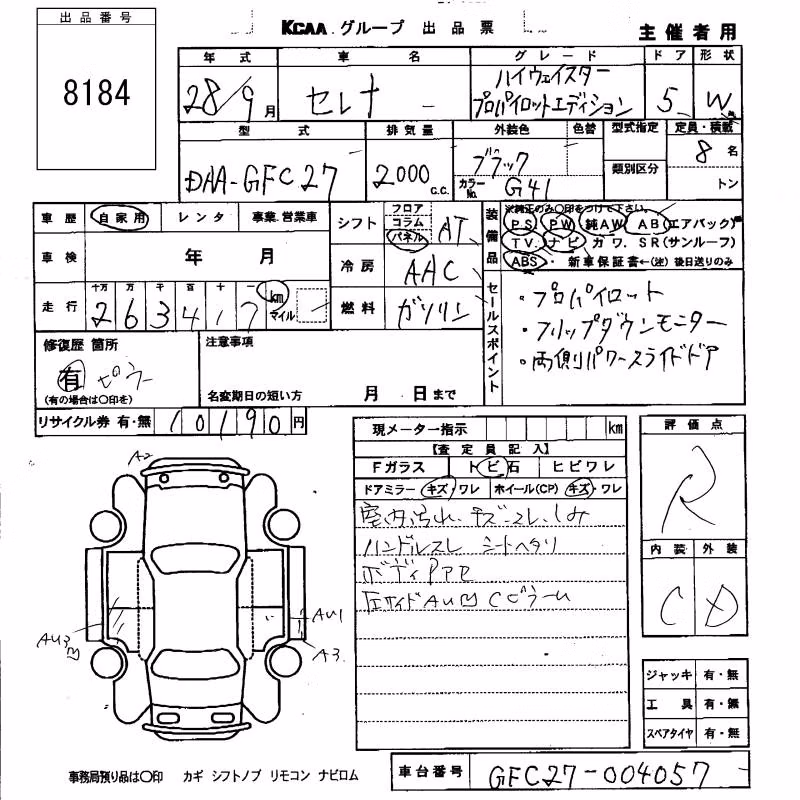 出品番号
8184
KCAA グループ 出品票
主催者用
年式 車名 グレード ドア 形状
28/9月 セレナ ハイウェイスター
プロパイロットエディション 5 W
型式 排気量 外装色 色替 型式指定 定員・積載
DAA-GFC27 2000 c.c. ブラック 類別区分 8名
カラーNo. G41 トン
車歴 自家用 レンタ 事業・営業車
シフト フロア コラム パネル AT
装備品 ※純正のみ○印をつけて下さい。
PS PW 純AW AB(エアバック)
TV. ナビ カワ. SR(サンルーフ)
ABS ・ 新車保証書←(注)後日送りのみ
車検 年 月
冷房 AAC
走行 十万 万 千 百 十 一
263417 km マイル
燃料 ガソリン
セールスポイント
・プロパイロット
・フリップダウンモニター
・両側パワースライドドア
修復歴 箇所
有 ピラー
(有の場合は○印を)
注意事項
名変期日の短い方 月 日まで
リサイクル券 有・無 10190円
現メーター指示 km
【査定員記入】
Fガラス トビ石 ヒビワレ
ドアミラー キズ・ワレ ホイール(CP) キズ・ワレ
室内汚れ、キズ・スレ、しみ
ハンドルスレ シートヘタリ
ボディ
評価点
R
内装 外装
C D
A2
AU3
AU1
A3
ジャッキ 有・無
工具 有・無
スペアタイヤ 有・無
事務局預り品は○印 カギ シフトノブ リモコン ナビロム
車台番号 GFC27-004057